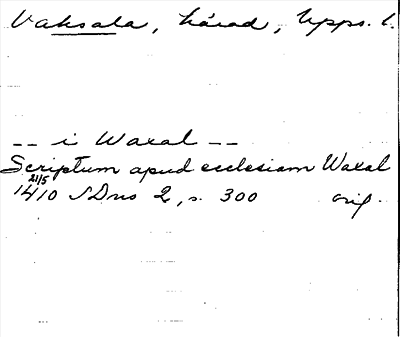 Vaksala, härad, Upps. l.
-- i Waxal --
Scriptum apud ecclesiam Waxal
21/5
1410 SDns 2, s. 300 orig.